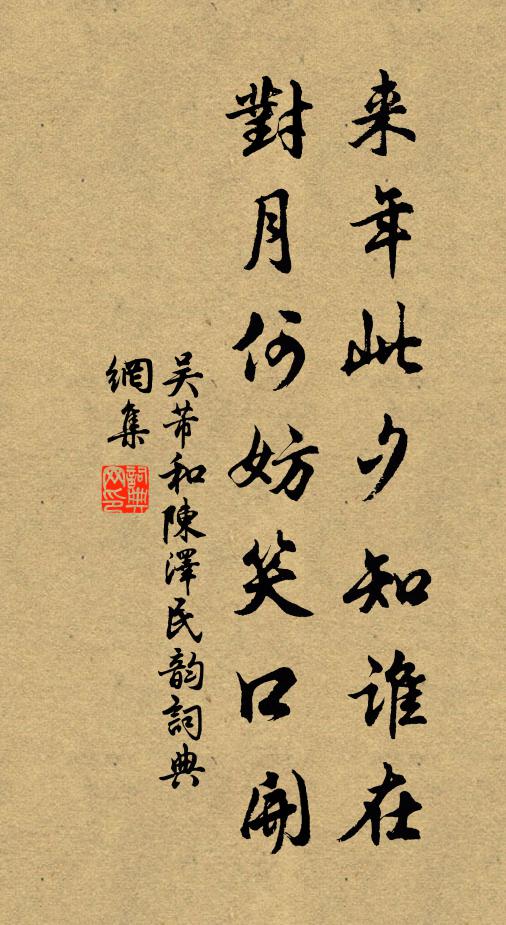 来年此夕知谁在
對月何妨笑口開
吴芾和陳澤民韵詞典
網集
詞典網印